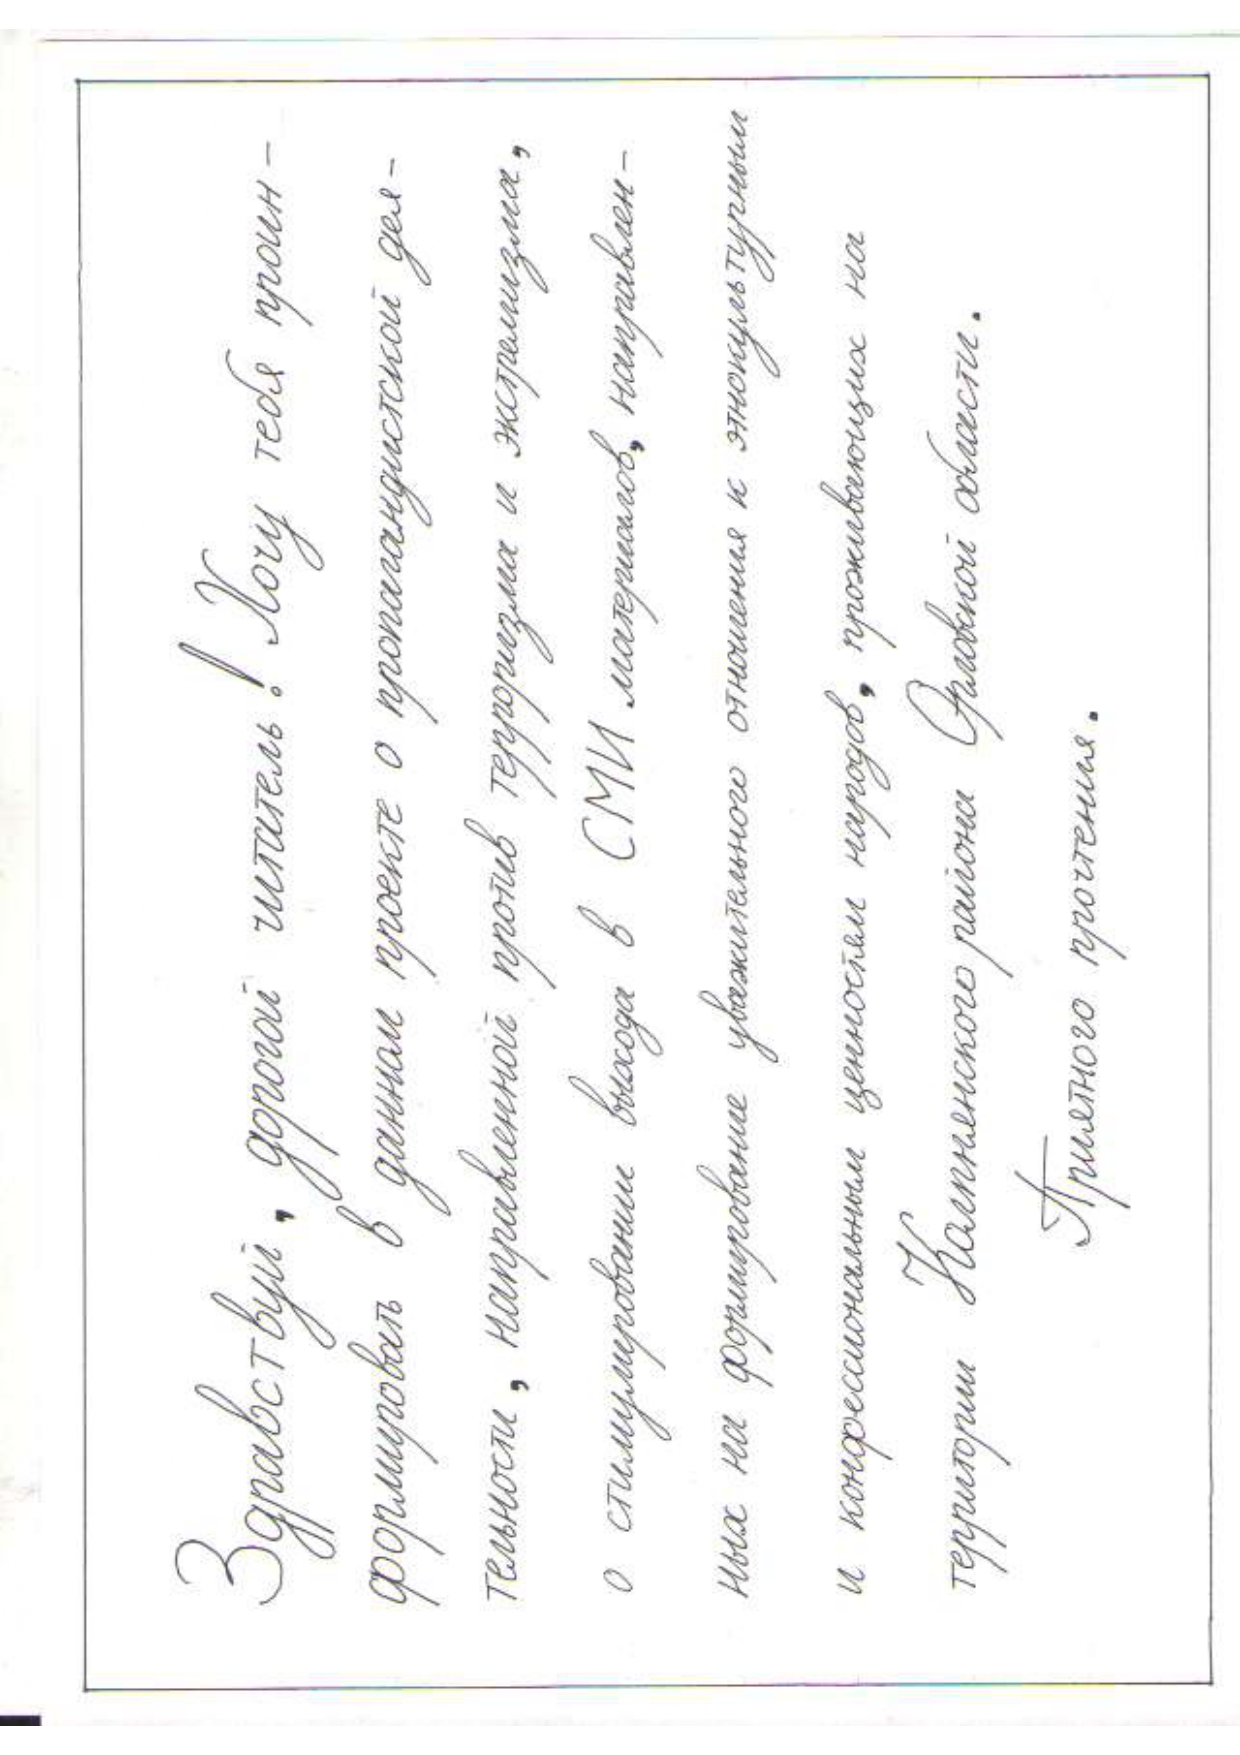 Здравствуй, дорогой читатель! Хочу тебя проин-
формировать в данном проекте о пропагандистской дея-
тельности, направленной против терроризма и экстремизма,
о стимулировании выхода в СМИ материалов, направлен-
ных на формирование уважительного отношения к этнокультурным
и конфессиональным ценностям народов, проживающих на
территории Колпнянского района Орловской области.
Приятного прочтения.